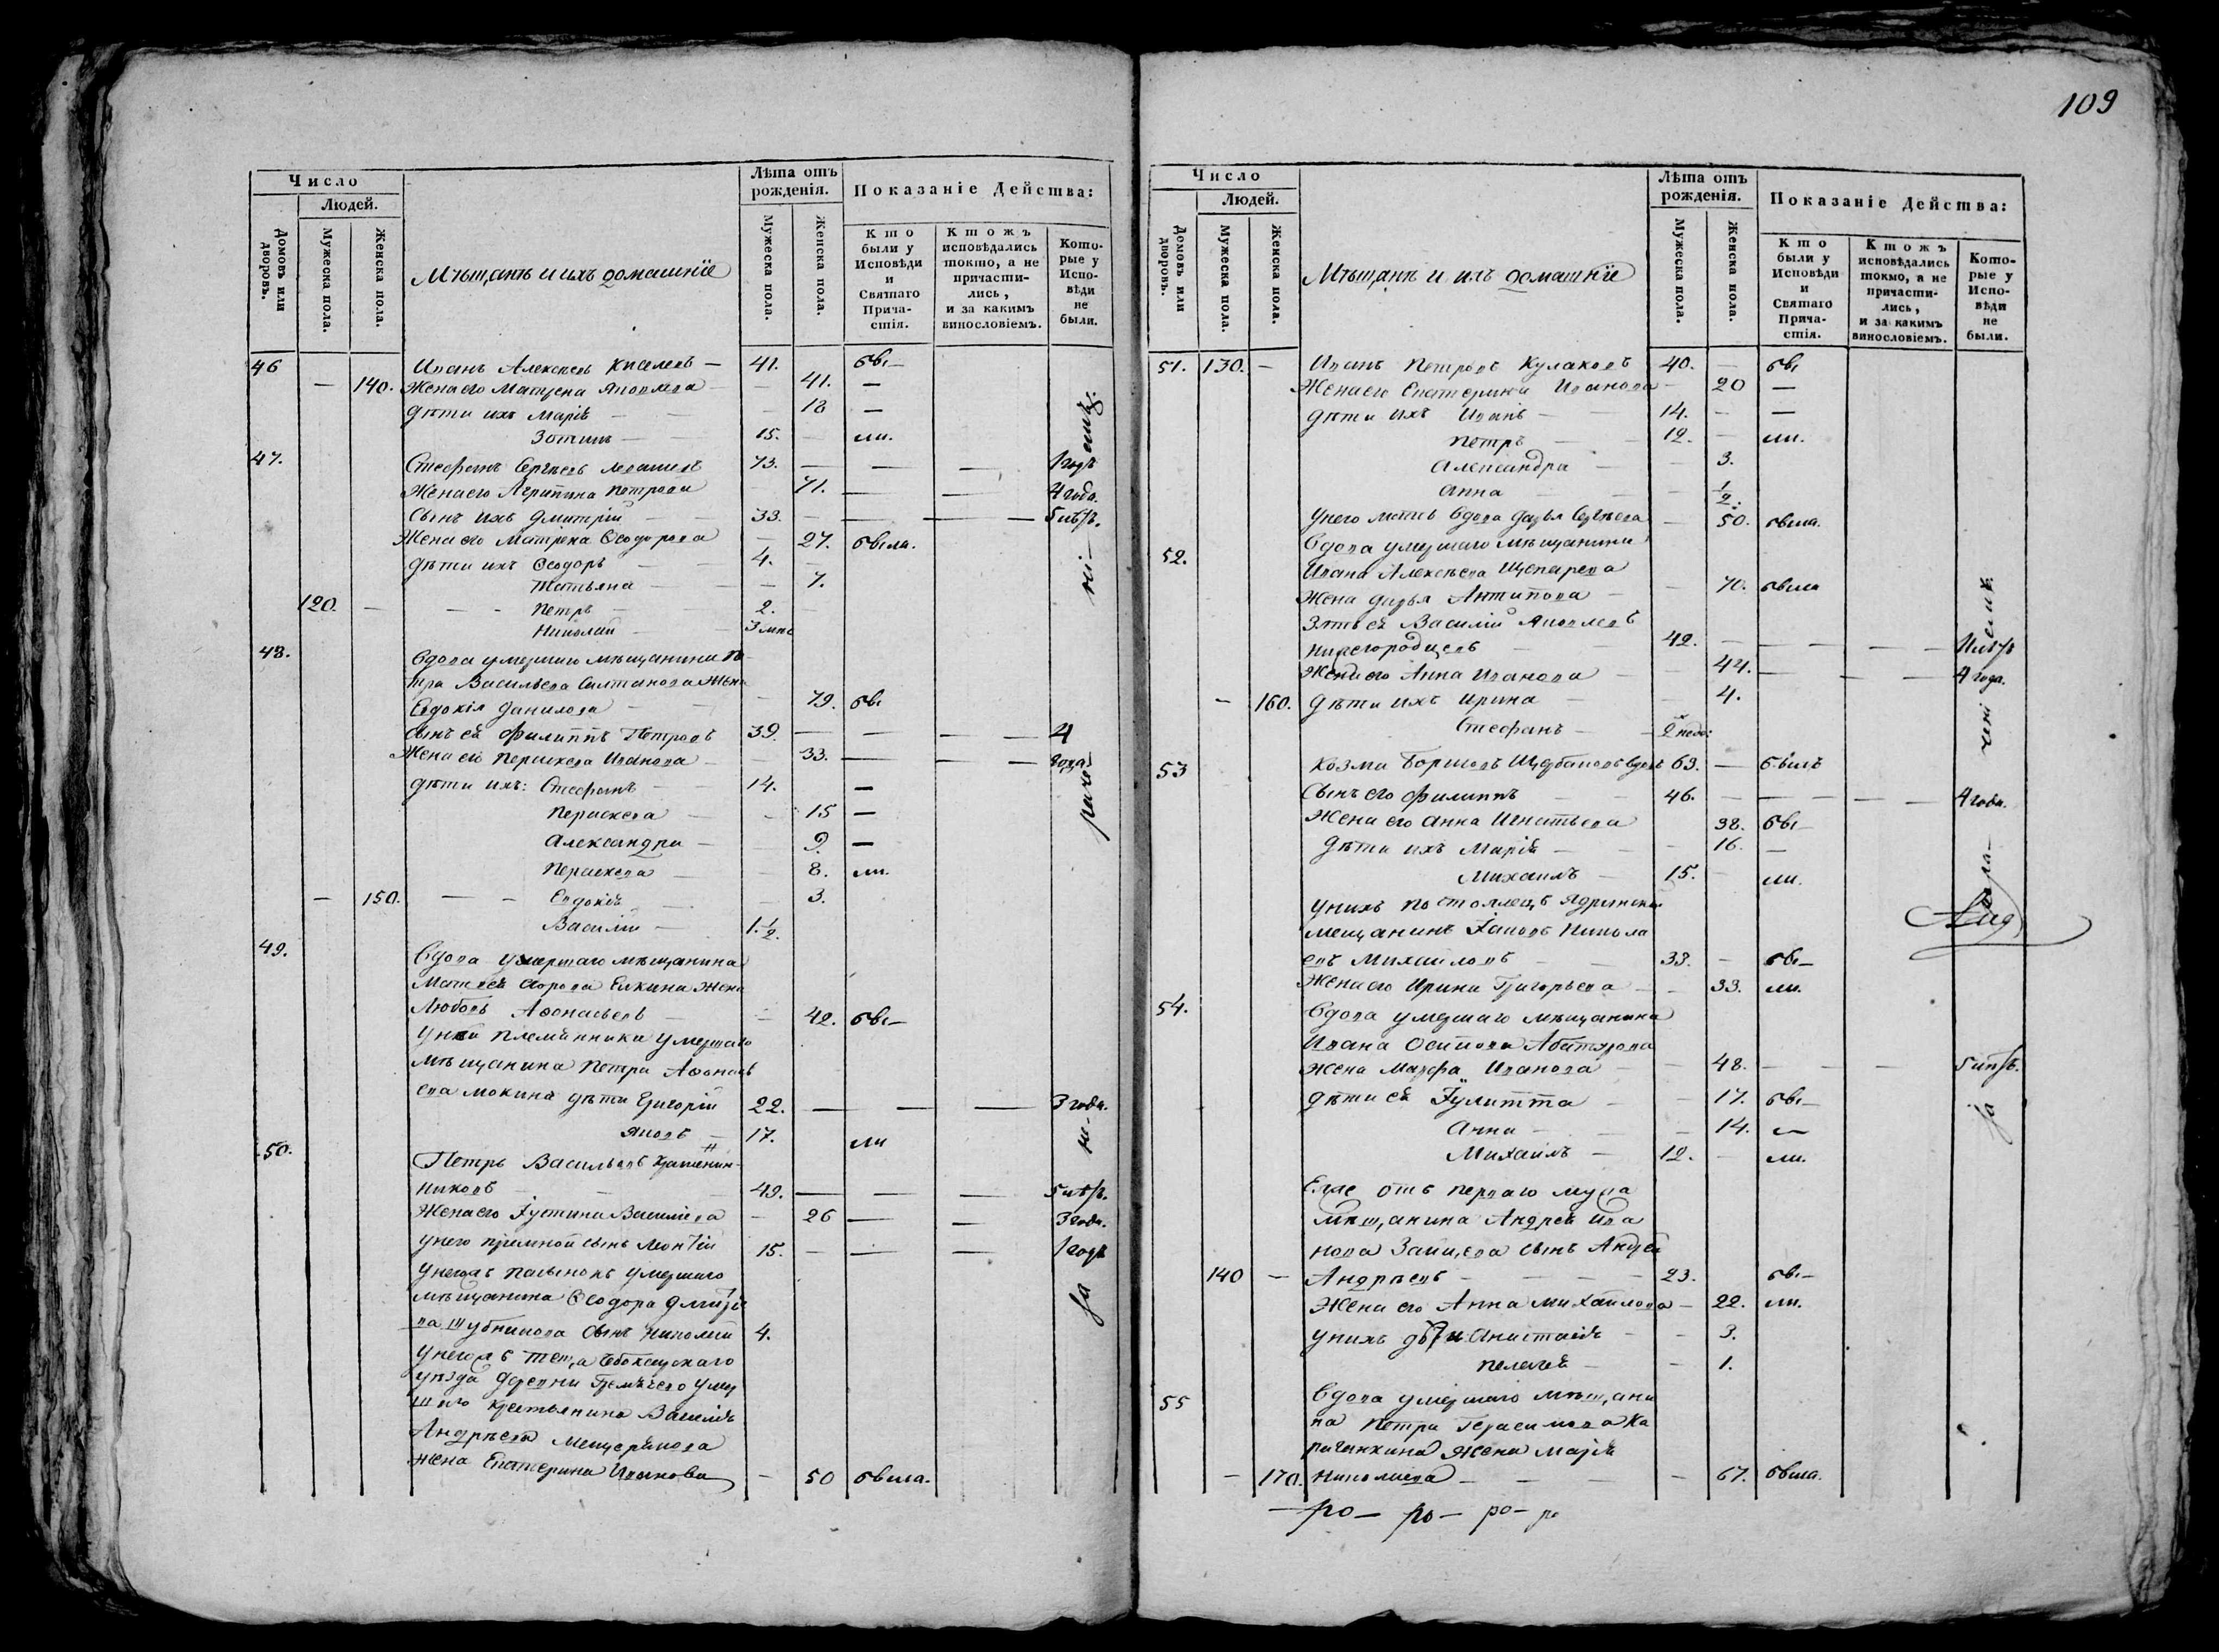 109
Число
Людей.
Домовъ или дворовъ.
Мужеска пола.
Женска пола.
Мѣщанъ и ихъ домашнїе
Лѣта отъ рожденія.
Мужеска пола.
Женска пола.
Показаніе Действа:
Кто были у Исповѣди и Святаго Причастія.
Ктожъ исповѣдались токмо, а не причастились, и за какимъ винословіемъ.
Которые у Исповѣди не были.
46 Иванъ Алексѣевъ Киселевъ — 41. бы—
— 140. Жена его Матрена Яковлева — 41. —
дѣти ихъ Марія — 18 —
Зотикъ — 15. — ли.
47. Стефанъ Сергѣевъ 73. — — — 1 годъ
Жена его Агрипина Петрова 71. — — 4 года.
Сынъ ихъ Дмитрій 33. — — — 5 лѣтъ.
Жена его Матрена Ѳеодорова — 27. была.
дѣти ихъ Ѳеодоръ — 4. —
Татьяна — 7.
120. — Петръ — 2.
Николай — 3 мѣс
48. Вдова умершаго мѣщанина Пе
тра Васильева Салтанова жена
Евдокія Данилова — 79. бы
сынъ ея Филиппъ Петровъ 39. — — — 4
Жена его Параскева Иванова — 33. — — года
дѣти ихъ: Стефанъ — 14. —
Параскева — 15 —
Александра — 9. —
Параскева — 8. ли.
— 150. — Евдокія — 3.
Василій — 1.½.
49. Вдова умершаго мѣщанина
Матвея Елкина жена
Любовь Аѳонасьева — 42. бы—
У ней племянники умершаго
мѣщанина Петра Аѳонась
ева Мокина дѣти Григорій 22. — — — 3 года.
Яковъ — 17. ли
50. Петръ Васильевъ Крашенин
никовъ — 49. — — — 5 лѣтъ.
Жена его Іустина Василіева — 26 — — 3 года.
У него приемной сынъ Леонтій 15. — — — 1 годъ
У негожъ пасынокъ умершаго
мѣщанина Ѳеодора Дмитріе
ва Шубникова сынъ Николай 4.
У негожъ теща Чебоксарскаго
уѣзда деревни умер
шаго крестьянина Василія
Андрѣева Мещерякова
жена Екатерина Иванова — 50 была.
Число
Людей.
Домовъ или дворовъ.
Мужеска пола.
Женска пола.
Мѣщанъ и ихъ домашнїе
Лѣта отъ рожденія.
Мужеска пола.
Женска пола.
Показаніе Действа:
Кто были у Исповѣди и Святаго Причастія.
Ктожъ исповѣдались токмо, а не причастились, и за какимъ винословіемъ.
Которые у Исповѣди не были.
51. 130. — Иванъ Петровъ Кулаковъ 40. — бы
Жена его Екатерина Иванова — 20 —
дѣти ихъ Иванъ — 14. — —
Петръ — 12. — ли.
Александра — 3.
Анна — ½.
У него мать вдова Дарья Сергѣева — 50. была.
52. Вдова умершаго мѣщанина
Ивана Алексѣева
жена Дарья Антипова — 70. была
Зять ея Василій Яковлевъ
Нижегородцевъ — 42. — — —
Жена его Анна Иванова — 44. — — — 4 года.
— 160. дѣти ихъ Ирина — 4.
Стефанъ — 2 неде:
53 Козма Щербаковъ вдовъ 63. — былъ
Сынъ его Филиппъ 46. — — — 4 года.
Жена его Анна Игнатьева 38. бы—
дѣти ихъ Марія — 16. —
Михаилъ — 15. — ли.
У нихъ постоялецъ Ядринской
мещанинъ Іаковъ Никола
евъ Михайловъ — 33. — бы—
Жена его Ирина Григорьева — 33. ли.
54. Вдова умершаго мѣщанина
Ивана Осипова
жена Марфа Иванова — 48. — — — 5 лѣтъ.
дѣти ея Іулитта — 17. бы—
Анна — 14. —
Михаилъ — 12. — ли.
Еяже отъ перваго мужа
мѣщанина Андрея Ива
нова Зайцева сынъ Андрей
140 — Андрѣевъ — 23. бы—
Жена его Анна Михайлова — 22. ли.
у нихъ дѣти Анастасія — 3.
Пелагея — 1.
55 Вдова умершаго мѣщани
на Петра Герасимова Ка
жена Марія
— 170. Николаева — 67. была.
—ро— ро— ро— ро